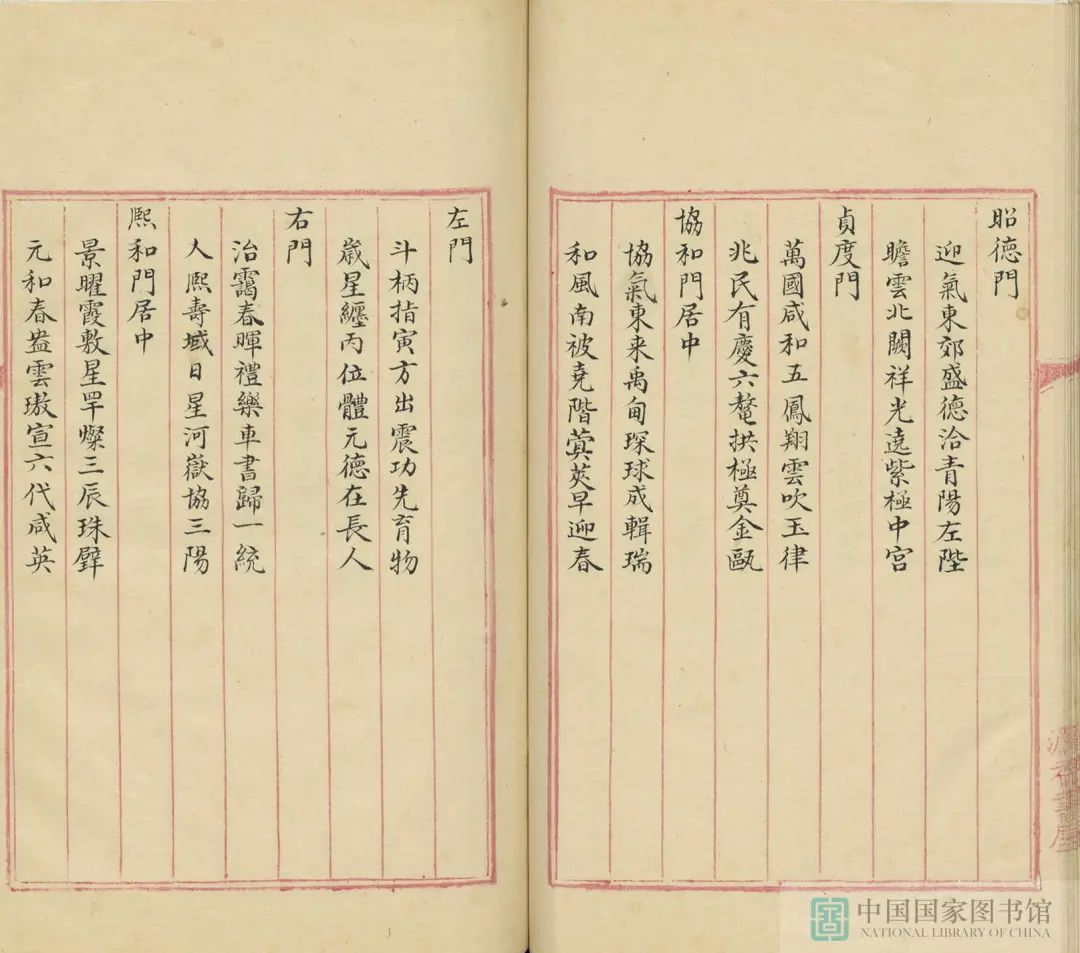 昭德門
迎氣東郊盛德洽青陽左陛
瞻雲北闕祥光遶紫極中宮
貞度門
萬國咸和五鳳翔雲吹玉律
兆民有慶六鼇拱極奠金甌
協和門居中
協氣東来禹甸琛球成輯瑞
和風南被堯階蓂莢早迎春
左門
斗柄指寅方出震功先育物
歲星纏丙位體元德在長人
右門
治靄春暉禮樂車書歸一統
人熙壽域日星河嶽協三陽
熙和門居中
景曜霞敷星罕燦三辰珠璧
元和春盎雲璈宣六代咸英
中国国家图书馆
NATIONAL LIBRARY OF CHINA